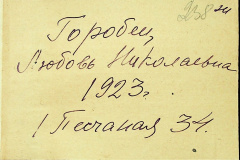 238
Горобец,
Любовь Николаевна
1923г.
1 Песчаная 34.